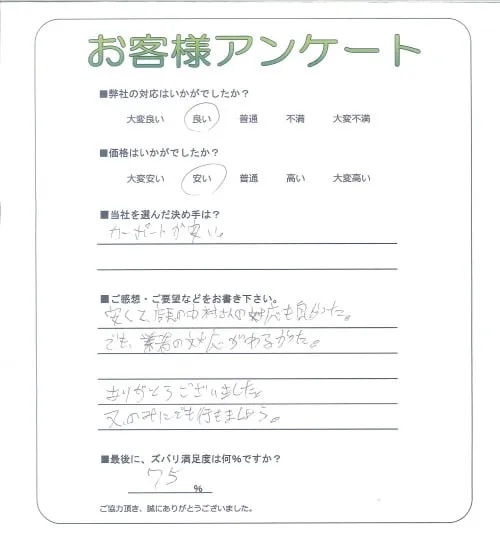 お客様アンケート
■弊社の対応はいかがでしたか?
大変良い 良い 普通 不満 大変不満
■価格はいかがでしたか?
大変安い 安い 普通 高い 大変高い
■当社を選んだ決め手は?
カーポートが安い。
■ご感想・ご要望などをお書き下さい。
安くて、店員の中村さんの対応も良かった。
でも、業者の対応がわるかった。
ありがとうございました。
又、のみにでも行きましょう。
■最後に、ズバリ満足度は何%ですか?
75
%
ご協力頂き、誠にありがとうございました。